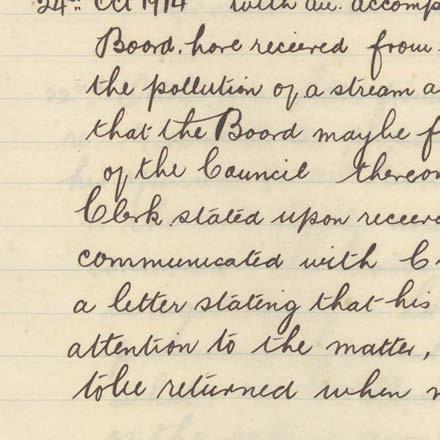 24th Oct 1914 with an. accomp
Board, have recieved from
the pollution of a stream a
that the Board maybe f
of the Council thereon
Clerk stated upon receiv
communicated with C
a letter stating that his
attention to the matter,
tobe returned when